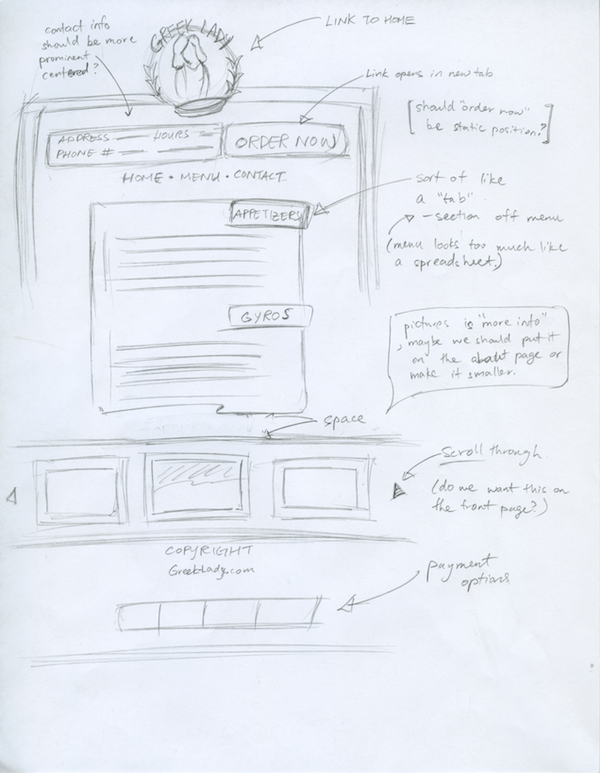 contact info
should be more
prominent
centered?
GREEK LADY
LINK TO HOME
Link opens in new tab
[should "order now"
be static position?]
ADDRESS
HOURS
PHONE #
ORDER NOW
HOME • MENU • CONTACT
sort of like
a "tab"
- section off menu
(menu looks too much like
a spreadsheet)
APPETIZERS
GYROS
pictures is "more info"
, maybe we should put it
on the about page or
make it smaller.
space
scroll through
(do we want this on
the front page?)
COPYRIGHT
GreekLady.com
payment
options